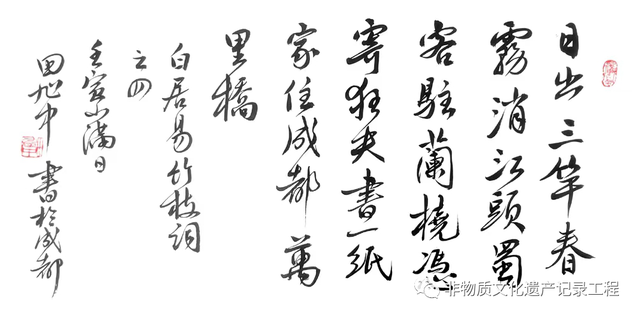 日出三竿春
霧消江頭蜀
客駐蘭橈憑
寄狂夫書一紙
家住成都萬
里橋
白居易竹枝詞
之四
壬寅小滿日
田旭中書於成都
非物质文化遗产记录工程